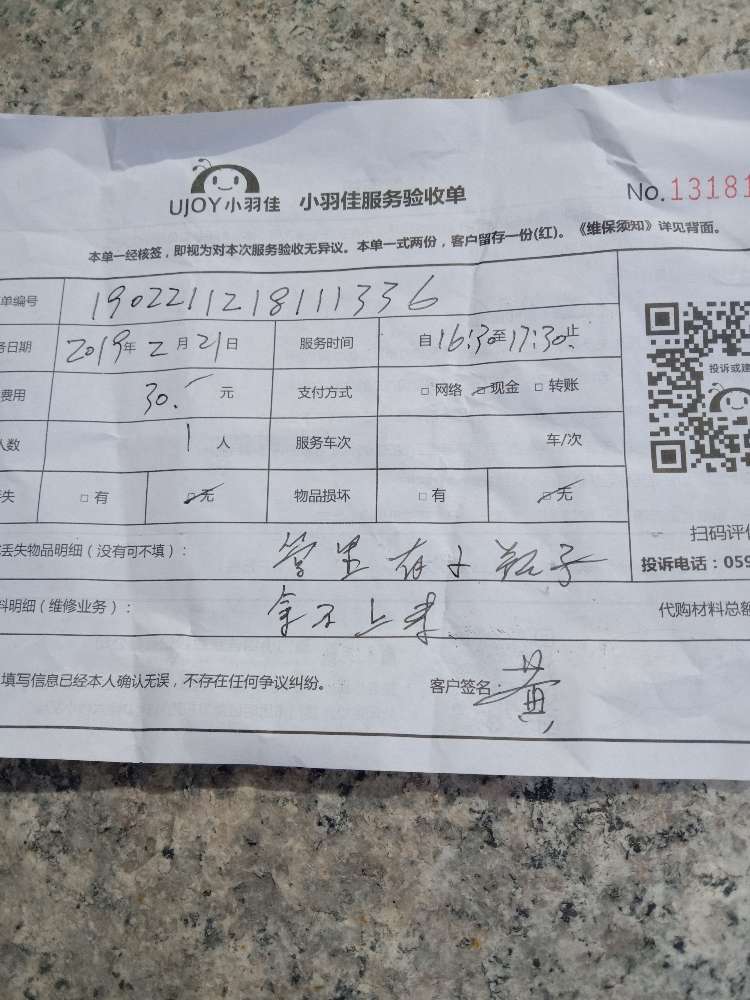 UJOY小羽佳 小羽佳服务验收单 No.13181
本单一经核签，即视为对本次服务验收无异议。本单一式两份，客户留存一份(红)。《维保须知》详见背面。
单编号 190221121811336
务日期 2019年2月21日 服务时间 自16:30至17:30止
费用 30. 元 支付方式 □ 网络 □ 现金 □ 转账
投诉或建
人数 1人 服务车次 车/次
失 □ 有 □ 无 物品损坏 □ 有 □ 无
扫码评价
丢失物品明细（没有可不填）： 管里有个瓶子
投诉电话：059
料明细（维修业务）： 拿不上来
代购材料总额
填写信息已经本人确认无误，不存在任何争议纠纷。 客户签名： 黄